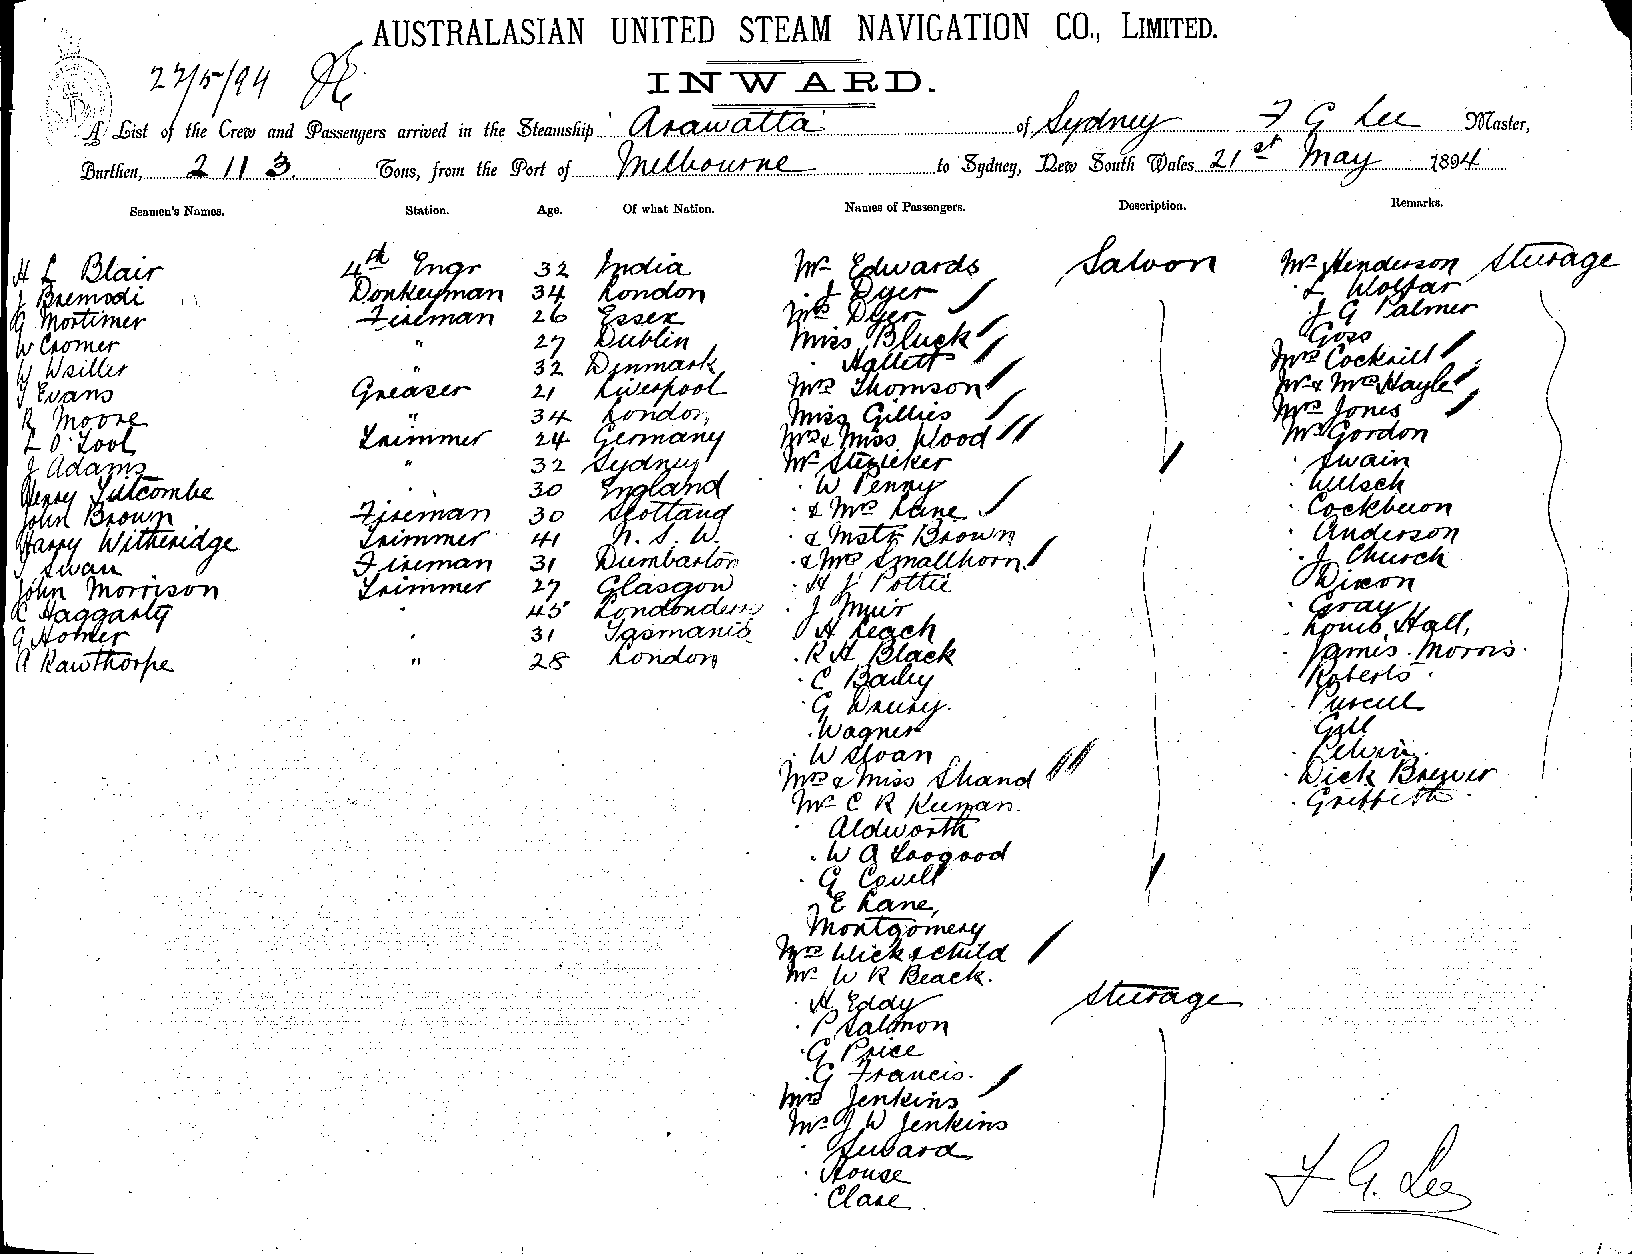 AUSTRALASIAN UNITED STEAM NAVIGATION CO., LIMITED.
22/5/94
INWARD.
A List of the Crew and Passengers arrived in the Steamship Arawatta of Sydney F G Lee Master,
Burthen, 2113 Tons, from the Port of Melbourne to Sydney, New South Wales 21st May 1894
Seamen's Names. Station. Age. Of what Nation. Names of Passengers. Description. Remarks.
H L Blair 4th Engr 32 India Mr Edwards Saloon Mr Henderson Steerage
J Bremodi Donkeyman 34 London " J Dyer " L Wolfar
G Mortimer Fireman 26 Essex Mrs Dyer J G Palmer
W Cromer " 27 Dublin Miss Bluck Goss
W Weiller " 32 Denmark " Hallett Mrs Cockrill
T Evans Greaser 21 Liverpool Mrs Thomson Mr & Mrs Hayle
R Moore " 34 London Miss Gillies Mrs Jones
L O'Tool Trimmer 24 Germany Mrs & Miss Wood Mr Gordon
J Adams " 32 Sydney Mr Stericker " Swain
Henry Titcombe " 30 England " W Penny " Welsch
John Brown Fireman 30 Scotland " & Mrs Lane " Cockburn
Harry Witheridge Trimmer 41 N. S. W. " & Mstr Brown " Anderson
J Swan Fireman 31 Dumbarton " & Mrs Smallhorn " J Church
John Morrison Trimmer 27 Glasgow " H J Pottie Dixon
R Haggarty " 45 Londonderry " J Muir " Gray
G Homer " 31 Tasmania " A Leach " Louis Hall,
A Rawthorpe " 28 London " R H Black " James Morris
" C Bailey " Roberts
" G Drury. " Purcell
" Wagner " Gill
" W Sloan
Mrs & Miss Shand " Dick Brewer
Mr C R Keenan. " Griffith
" Aldworth
" W A Toogood
" G Covell
" E Lane,
Montgomery
Mrs Wick & child
Mr W R Beack.
" H Eddy Steerage
" P Salmon
" G Price
" G Francis.
Mrs Jenkins
Mr J W Jenkins
" Seward
" House
" Clare
F G. Lee